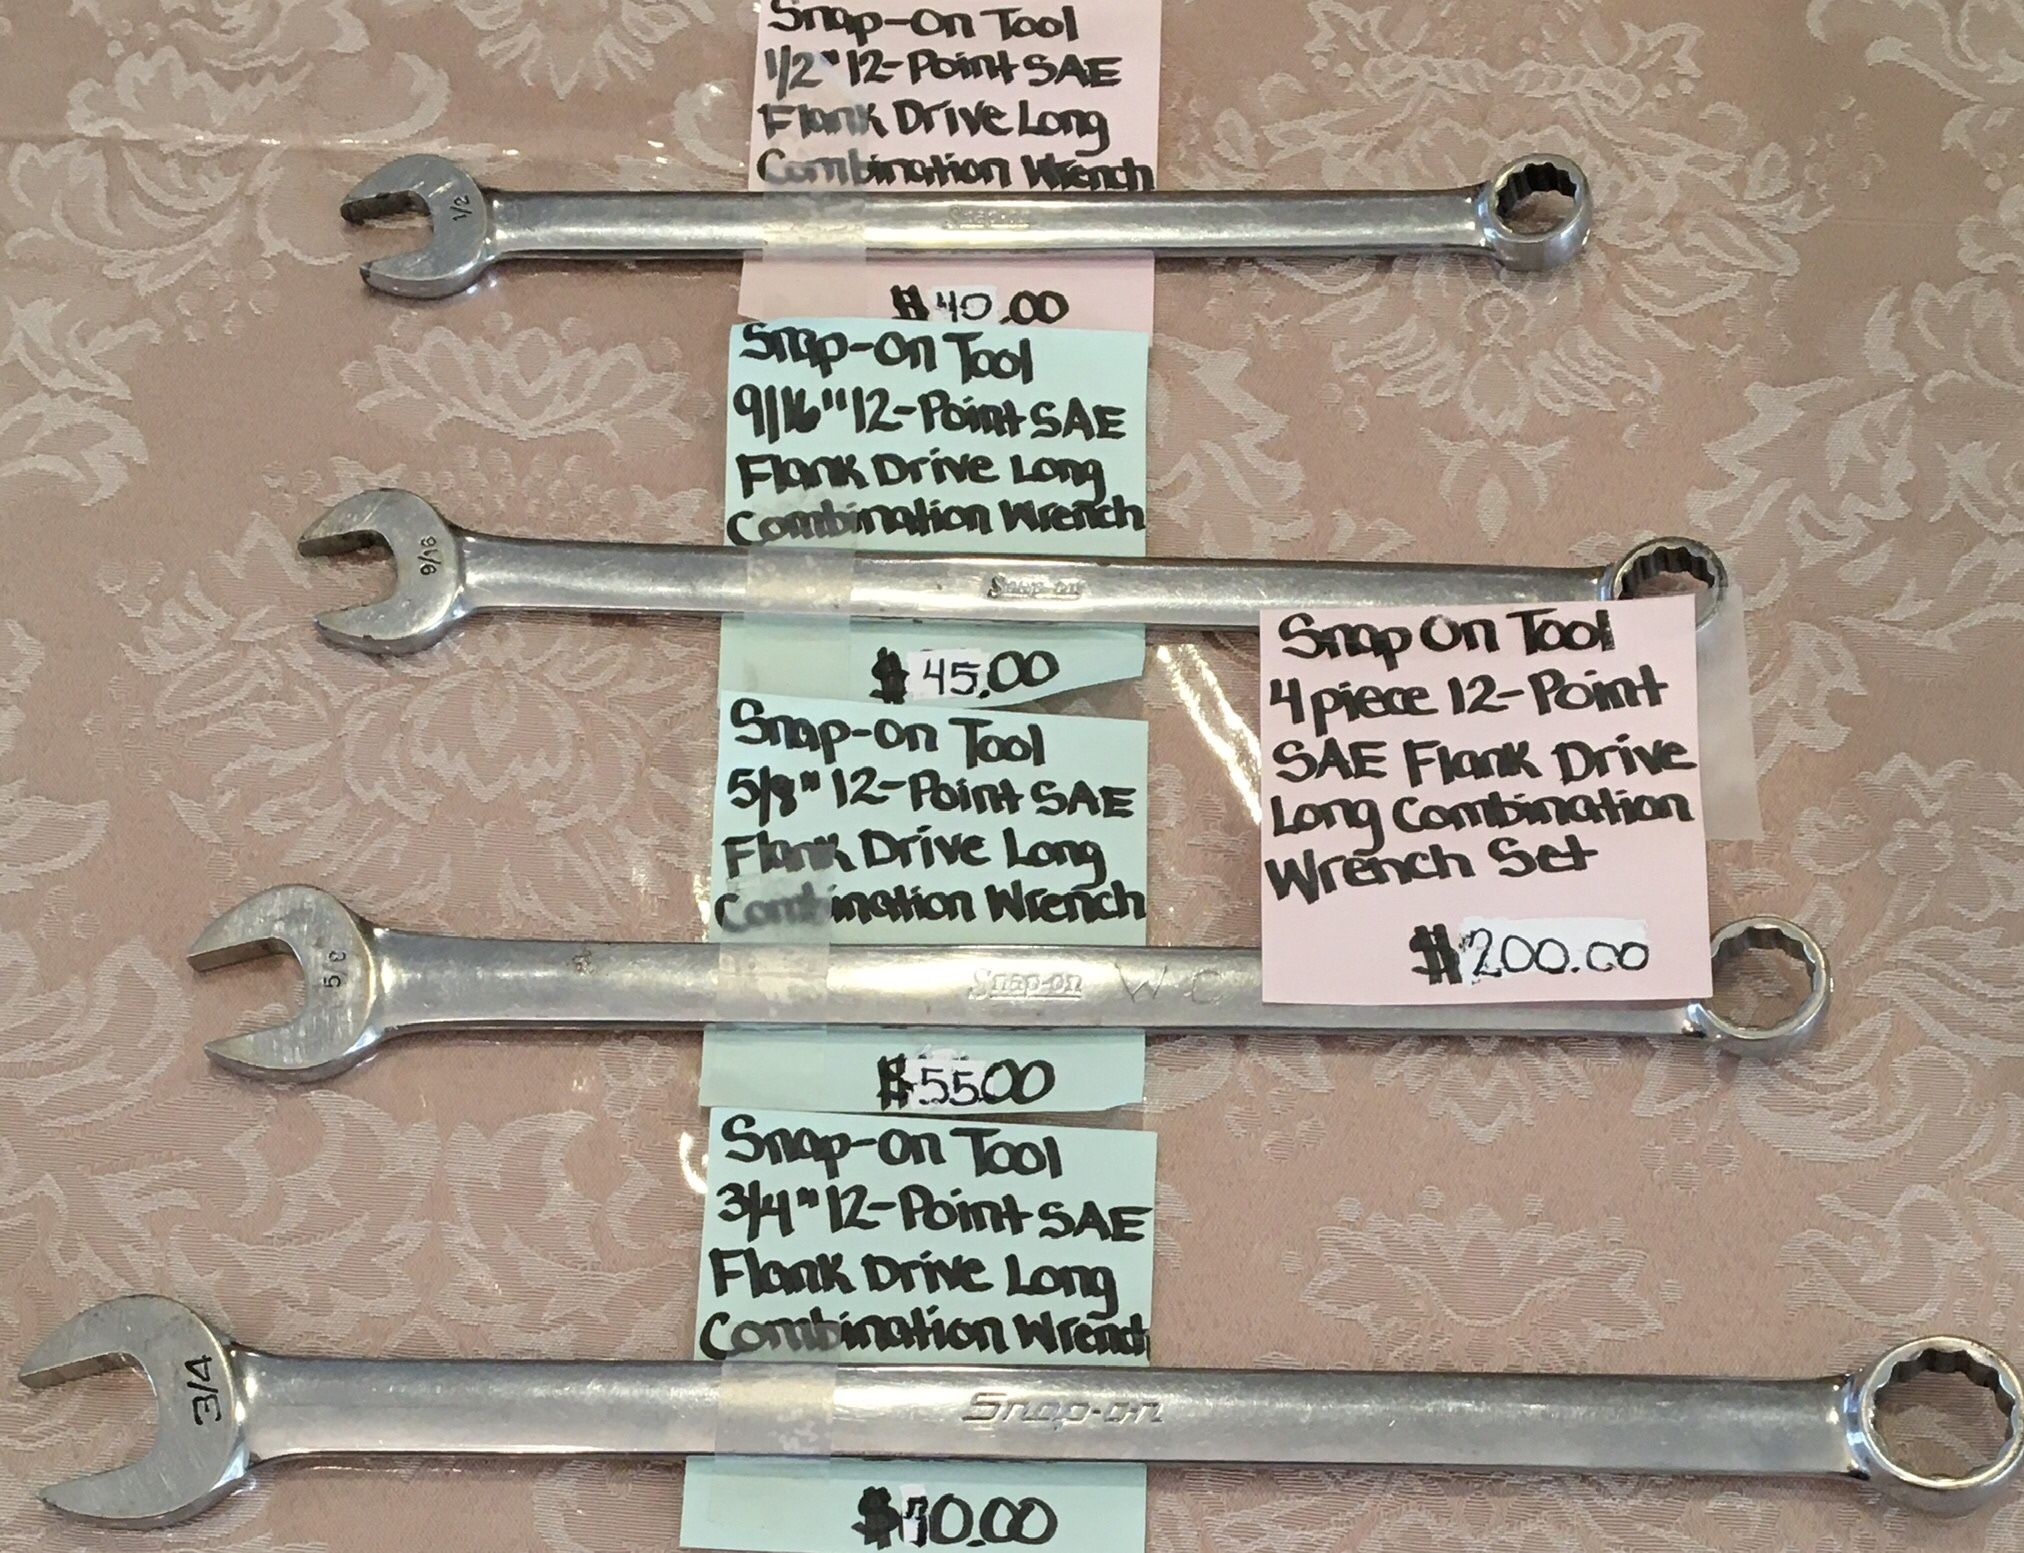 Snap-On Tool
1/2" 12-Point SAE
Flank Drive Long
Combination Wrench
1/2
Snap-on
$40.00
Snap-On Tool
9/16" 12-Point SAE
Flank Drive Long
Combination Wrench
9/16
Snap-on
$45.00
Snap-On Tool
5/8" 12-Point SAE
Flank Drive Long
Combination Wrench
5/8
Snap-on W C
$55.00
Snap On Tool
4 piece 12-Point
SAE Flank Drive
Long Combination
Wrench Set
$200.00
Snap-On Tool
3/4" 12-Point SAE
Flank Drive Long
Combination Wrench
3/4
Snap-on
$70.00